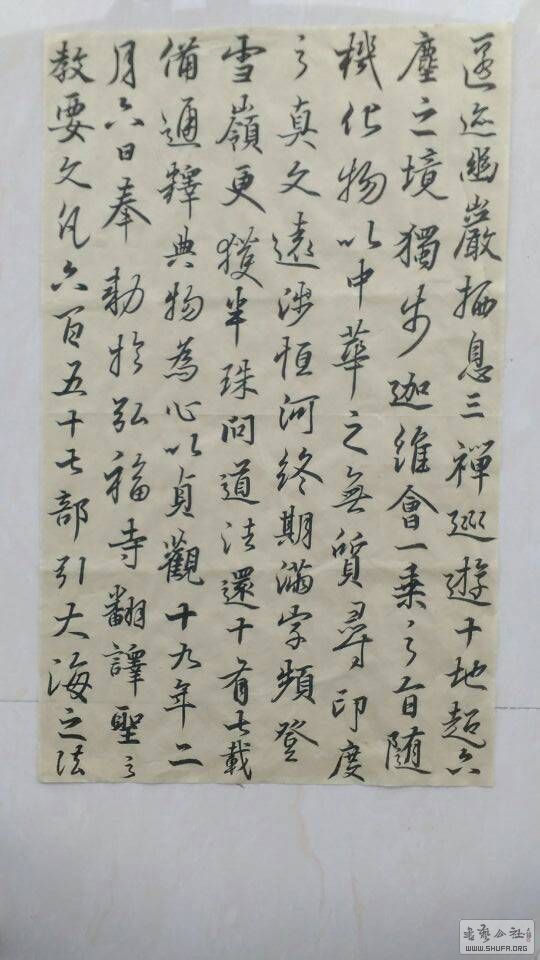 匿迹幽巖栖息三禪巡遊十地超六
塵之境獨步迦維會一乘之旨随
機化物以中華之無質尋印度
之真文遠涉恒河終期滿字頻登
雪嶺更獲半珠問道法還十有七載
備通釋典物為心以貞觀十九年二
月六日奉勅於弘福寺翻譯聖之
教要文凡六百五十七部引大海之法
书艺公社
WWW.SHUFA.ORG